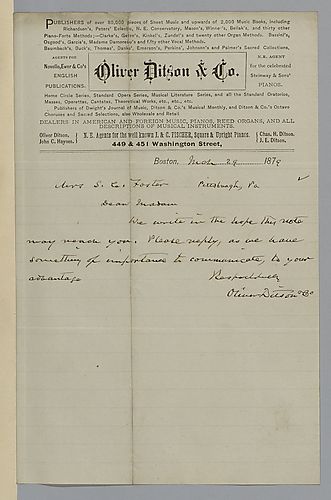 PUBLISHERS of over 80,000 pieces of Sheet Music and upwards of 2,000 Music Books, including
Richardson's, Peters' Eclectic, N. E. Conservatory, Mason's, Winner's, Bellak's, and thirty other
Piano-Forte Methods;—Clarke's, Getze's, Kinkel's, Zundel's and twenty other Organ Methods. Bassini's,
Osgood's, Garcia's, Madame Damoreau's and fifty other Vocal Methods.
Baumbach's, Buck's, Thomas', Danks', Emerson's, Perkins', Johnson's and Palmer's Sacred Collections,
AGENTS FOR
Novello, Ewer & Co's
ENGLISH
PUBLICATIONS.
Oliver Ditson & Co.
N.E. AGENT
for the celebrated
Steinway & Sons'
PIANOS.
Home Circle Series, Standard Opera Series, Musical Literature Series, and all the Standard Oratorios,
Masses, Operettas, Cantatas, Theoretical Works, etc., etc., etc.
Publishers of Dwight's Journal of Music, Ditson & Co.'s Musical Monthly, and Ditson & Co.'s Octavo
Choruses and Sacred Selections, also Wholesale and Retail
DEALERS IN AMERICAN AND FOREIGN MUSIC, PIANOS, REED ORGANS, AND ALL
DESCRIPTIONS OF MUSICAL INSTRUMENTS.
Oliver Ditson.
John C. Haynes.
N. E. Agents for the well known J. & C. FISCHER, Square & Upright Pianos.
Chas. H. Ditson.
J. E. Ditson.
449 & 451 Washington Street,
Boston, Mch 29 1879
Mrs S. C. Foster Pittsburgh, Pa
Dear Madam
We write in the hope this note
may reach you. Please reply, as we have
something of importance to communicate, to your
advantage
Respectfully
Oliver Ditson & Co